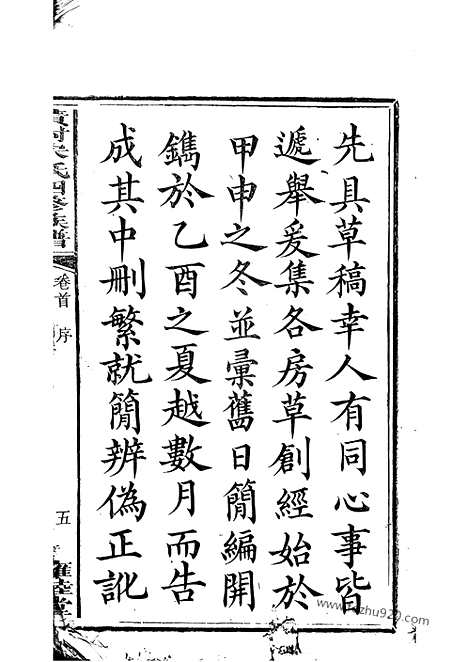 先具草稿幸人有同心事皆
遞舉爰集各房草創經始於
甲申之冬並彙舊日簡編開
鐫於乙酉之夏越數月而告
成其中刪繁就簡辨偽正訛
氏四修族譜
卷首 序
五